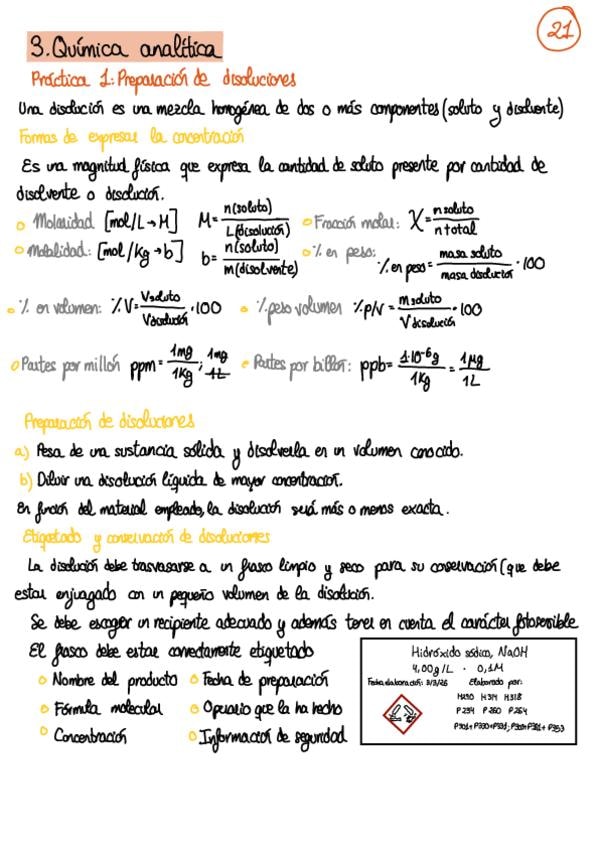 21
3. Química analítica
Práctica 1: Preparación de disoluciones
Una disolución es una mezcla homogénea de dos o más componentes (soluto y disolvente)
Formas de expresar la concentración
Es una magnitud física que expresa la cantidad de soluto presente por cantidad de
disolvente o disolución.
Molaridad [mol/L → M] M = n(soluto) / L(disolución) Fracción molar: X = n soluto / n total
Molalidad: [mol/kg → b] b = n(soluto) / m(disolvente) % en peso: % en peso = masa soluto / masa disolución · 100
% en volumen: % V = V soluto / V disolución · 100 % peso volumen % p/v = m soluto / V disolución · 100
Partes por millón ppm = 1mg / 1kg ; 1mg / 1L Partes por billón: ppb = 1·10⁻⁶g / 1kg = 1µg / 1L
Preparación de disoluciones
a) Pesa de una sustancia sólida y disolverla en un volumen conocido.
b) Diluir una disolución líquida de mayor concentración.
En función del material empleado, la disolución será más o menos exacta.
Etiquetado y conservación de disoluciones
La disolución debe trasvasarse a un frasco limpio y seco para su conservación (que debe
estar enjuagado con un pequeño volumen de la disolución.
Se debe escoger un recipiente adecuado y además tener en cuenta el carácter fotosensible
El frasco debe estar correctamente etiquetado
Nombre del producto Fecha de preparación
Fórmula molecular Operario que la ha hecho
Concentración Información de seguridad
Hidróxido sódico, NaOH
4,00g/L · 0,1M
Fecha elaboración: 3/3/26 Elaborado por:
H290 H314 H318
P234 P260 P264